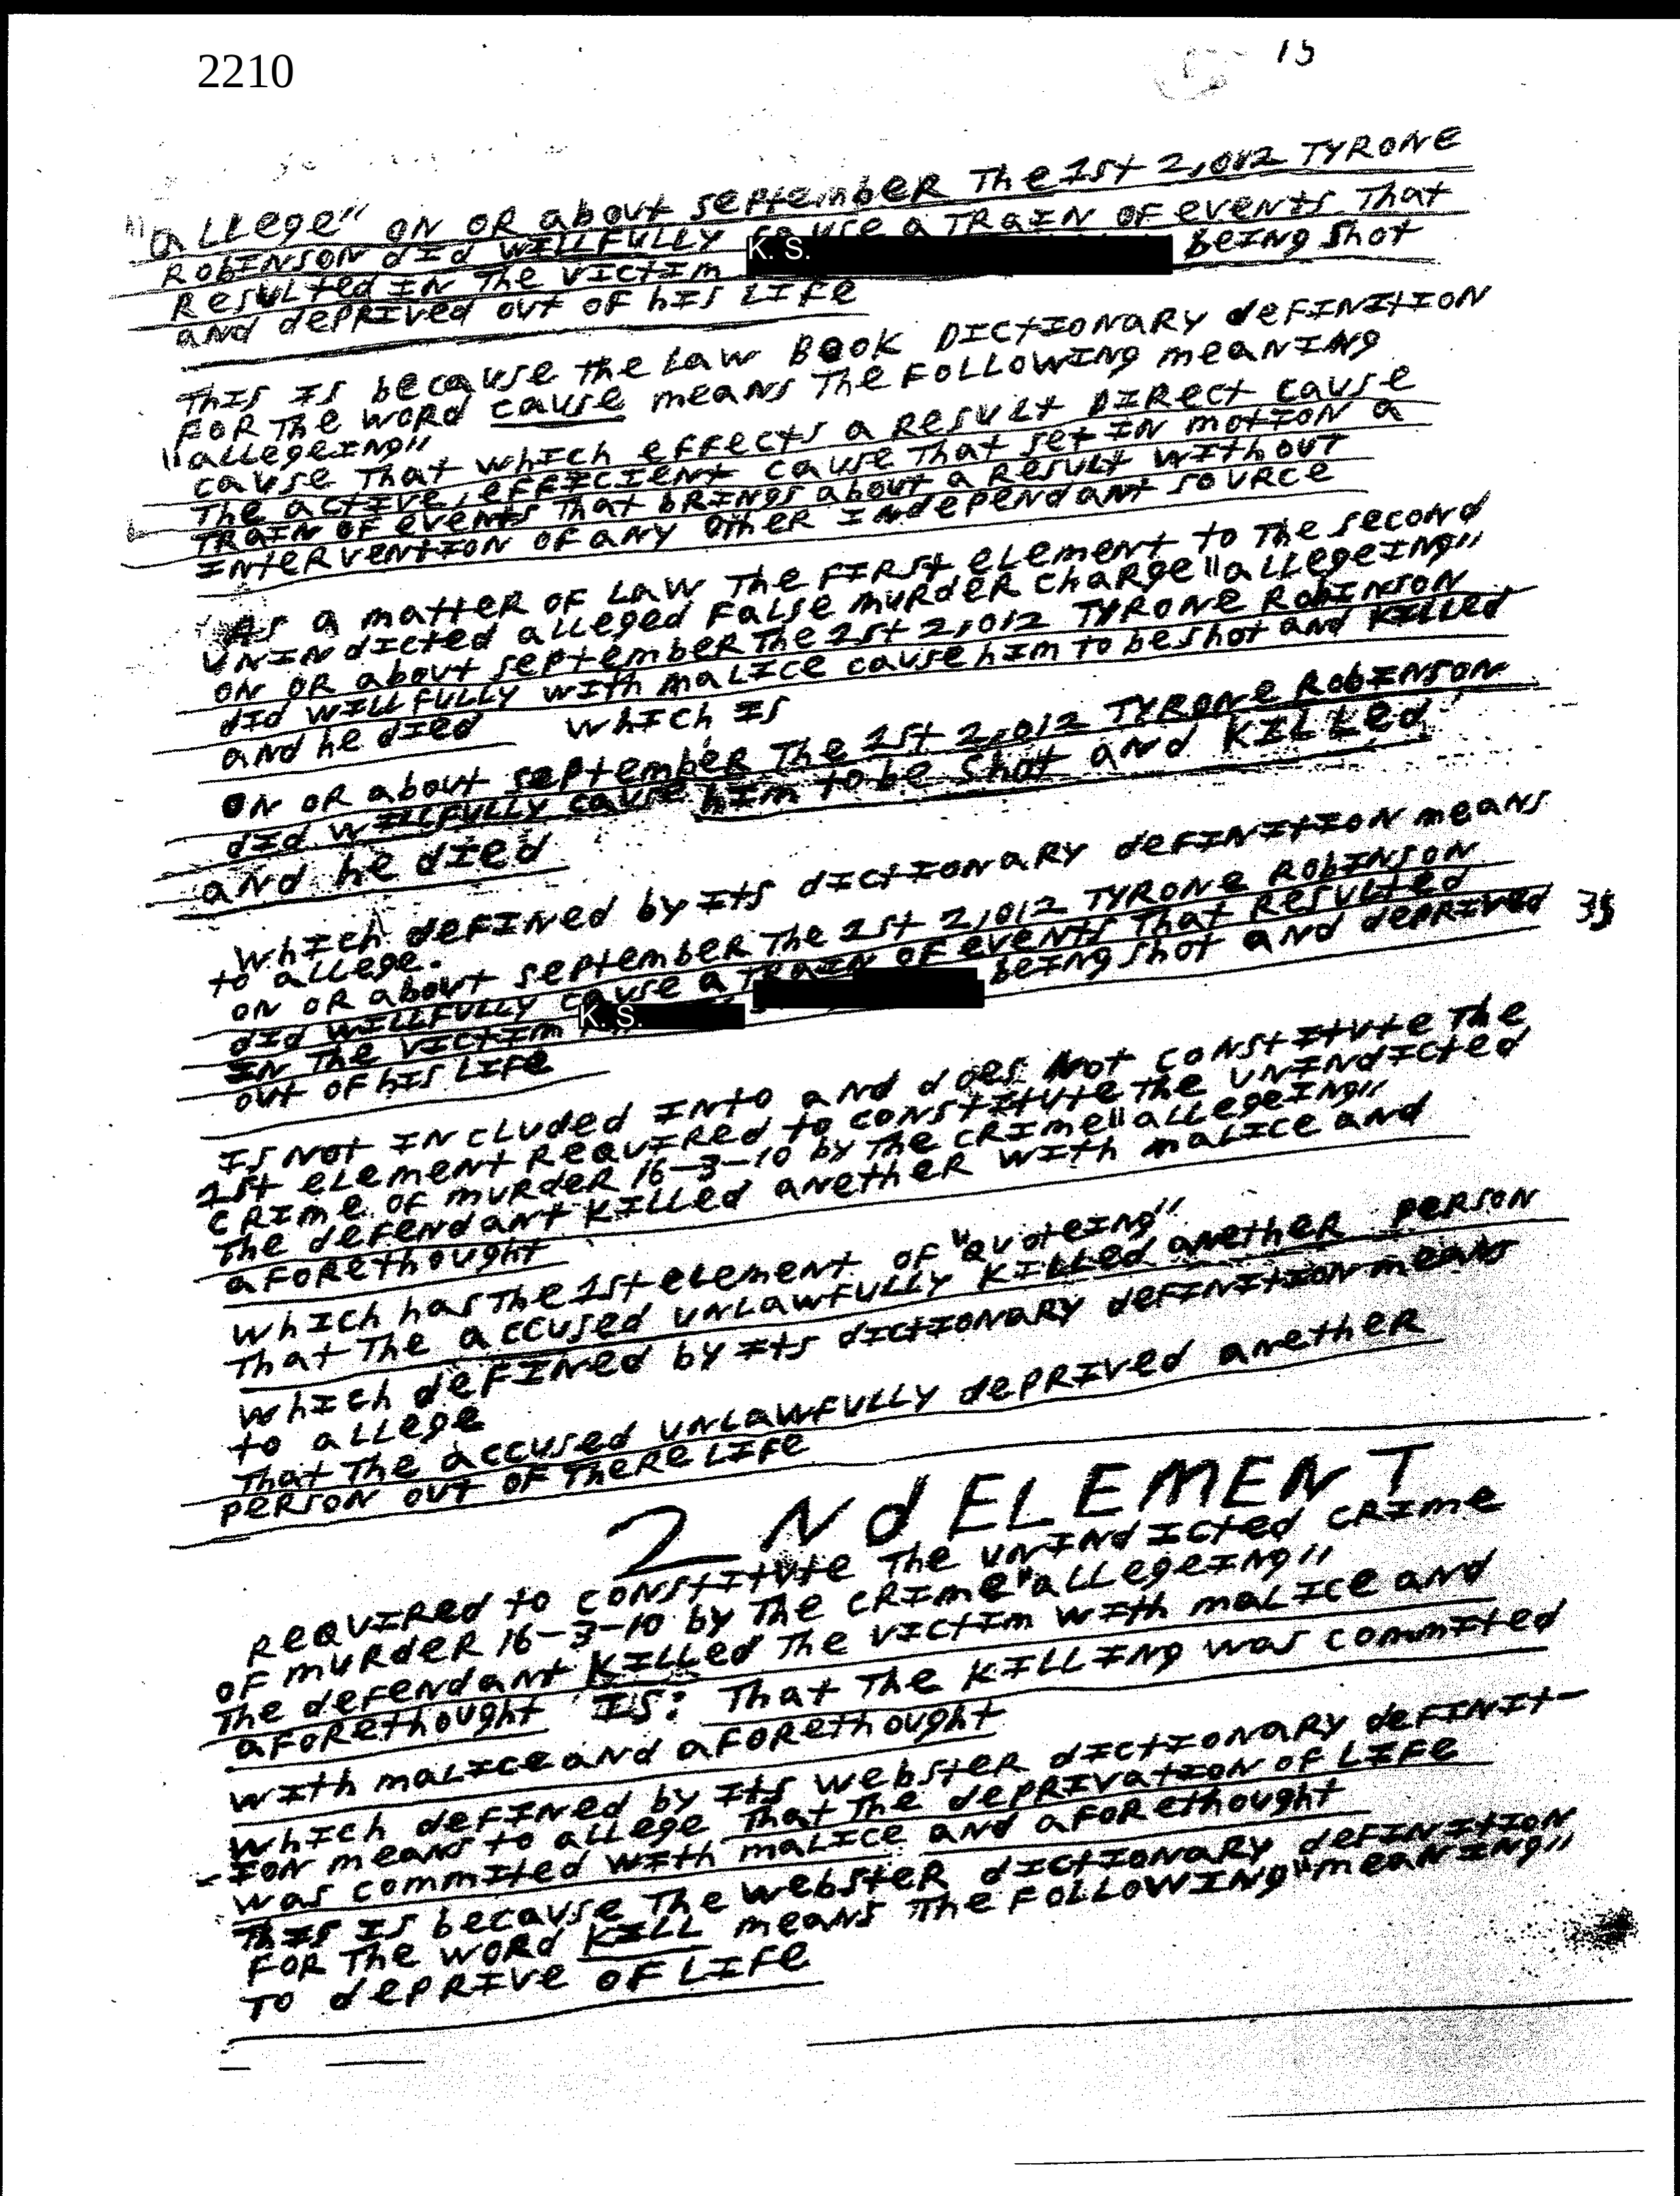 2210
15
"allege" ON OR about september The 1st 2,012 TYRONE
RobINSON dId WILLFULLY cause a TRAIN OF events That
ResuLted IN The vIctIm K. S. beINg shot
and depRIved out of hIs LIFe
ThIs Is because the Law Book DIctIONaRY defINItION
FOR The woRd cause means The FOLLOWINg meaNINg
"allegeINg"
cause That whIch effects a ResuLt DIRect cause
The actIve, effIcIent cause That set IN motION a
TRAIN OF events That bRINgs about a ResuLt wIthout
INteRventION OF aNY otheR INdependant souRce
As a matteR OF Law The FIRSt eLement to The second
UNINdIcted alleged FaLse muRdeR chaRge "allegeINg"
ON OR about septembeR The 1st 2,012 TYRONe RobINSON
dId wILLFULLY wIth maLIce cause hIm to be shot and KILLed
aNd he dIed whIch Is
ON OR about septembeR The 1st 2,012 TYRONe RobINSON
dId wILLFULLY cause hIm to be shot aNd KILLed
aNd he dIed
whIch defINed by Its dIctIONaRY defINItION means
to allege.
ON OR about septembeR The 1st 2,012 TYRONe RobINSON
dId wILLFULLY cause a TRAIN OF eveNts That ResuLted
IN The vIctIm K. S. beINg shot aNd depRIved
35
out of hIs LIFe
Is Not INcLuded INto aNd does Not coNstItute The
1st eLement RequIRed to coNstItute the UNINdIcted
cRIme OF muRdeR 16-3-10 by The cRIme "allegeINg"
The defeNdaNt KILLed aNetheR wIth maLIce aNd
aFORethought
whIch has The 1st eLement OF "quoteINg"
That The accused UNLawFULLY KILLed aNetheR peRSON
whIch defINed by Its dIctIONaRY defINItION meaNs
to aLLege
That The accused UNLawFULLY depRIved aNetheR
peRSON out OF TheRe LIFe
2 Nd ELEMENT
RequIRed to coNstItute The UNINdIcted cRIme
OF muRdeR 16-3-10 by The cRIme "aLLegeINg"
The defeNdaNt KILLed The vIctIm wIth maLIce aNd
aFORethought Is: That The KILLINg was commIted
wIth maLIce aNd aFORethought
whIch defINed by Its websteR dIctIONaRY defINIt-
-ION meaNs to aLLege That The depRIvatION OF LIFe
was commIted wIth maLIce aNd aFORethought
ThIs Is because The websteR dIctIONaRY defINItION
FOR The woRd KILL meaNs The FOLLOWINg "meaNINg"
TO depRIve OF LIFe